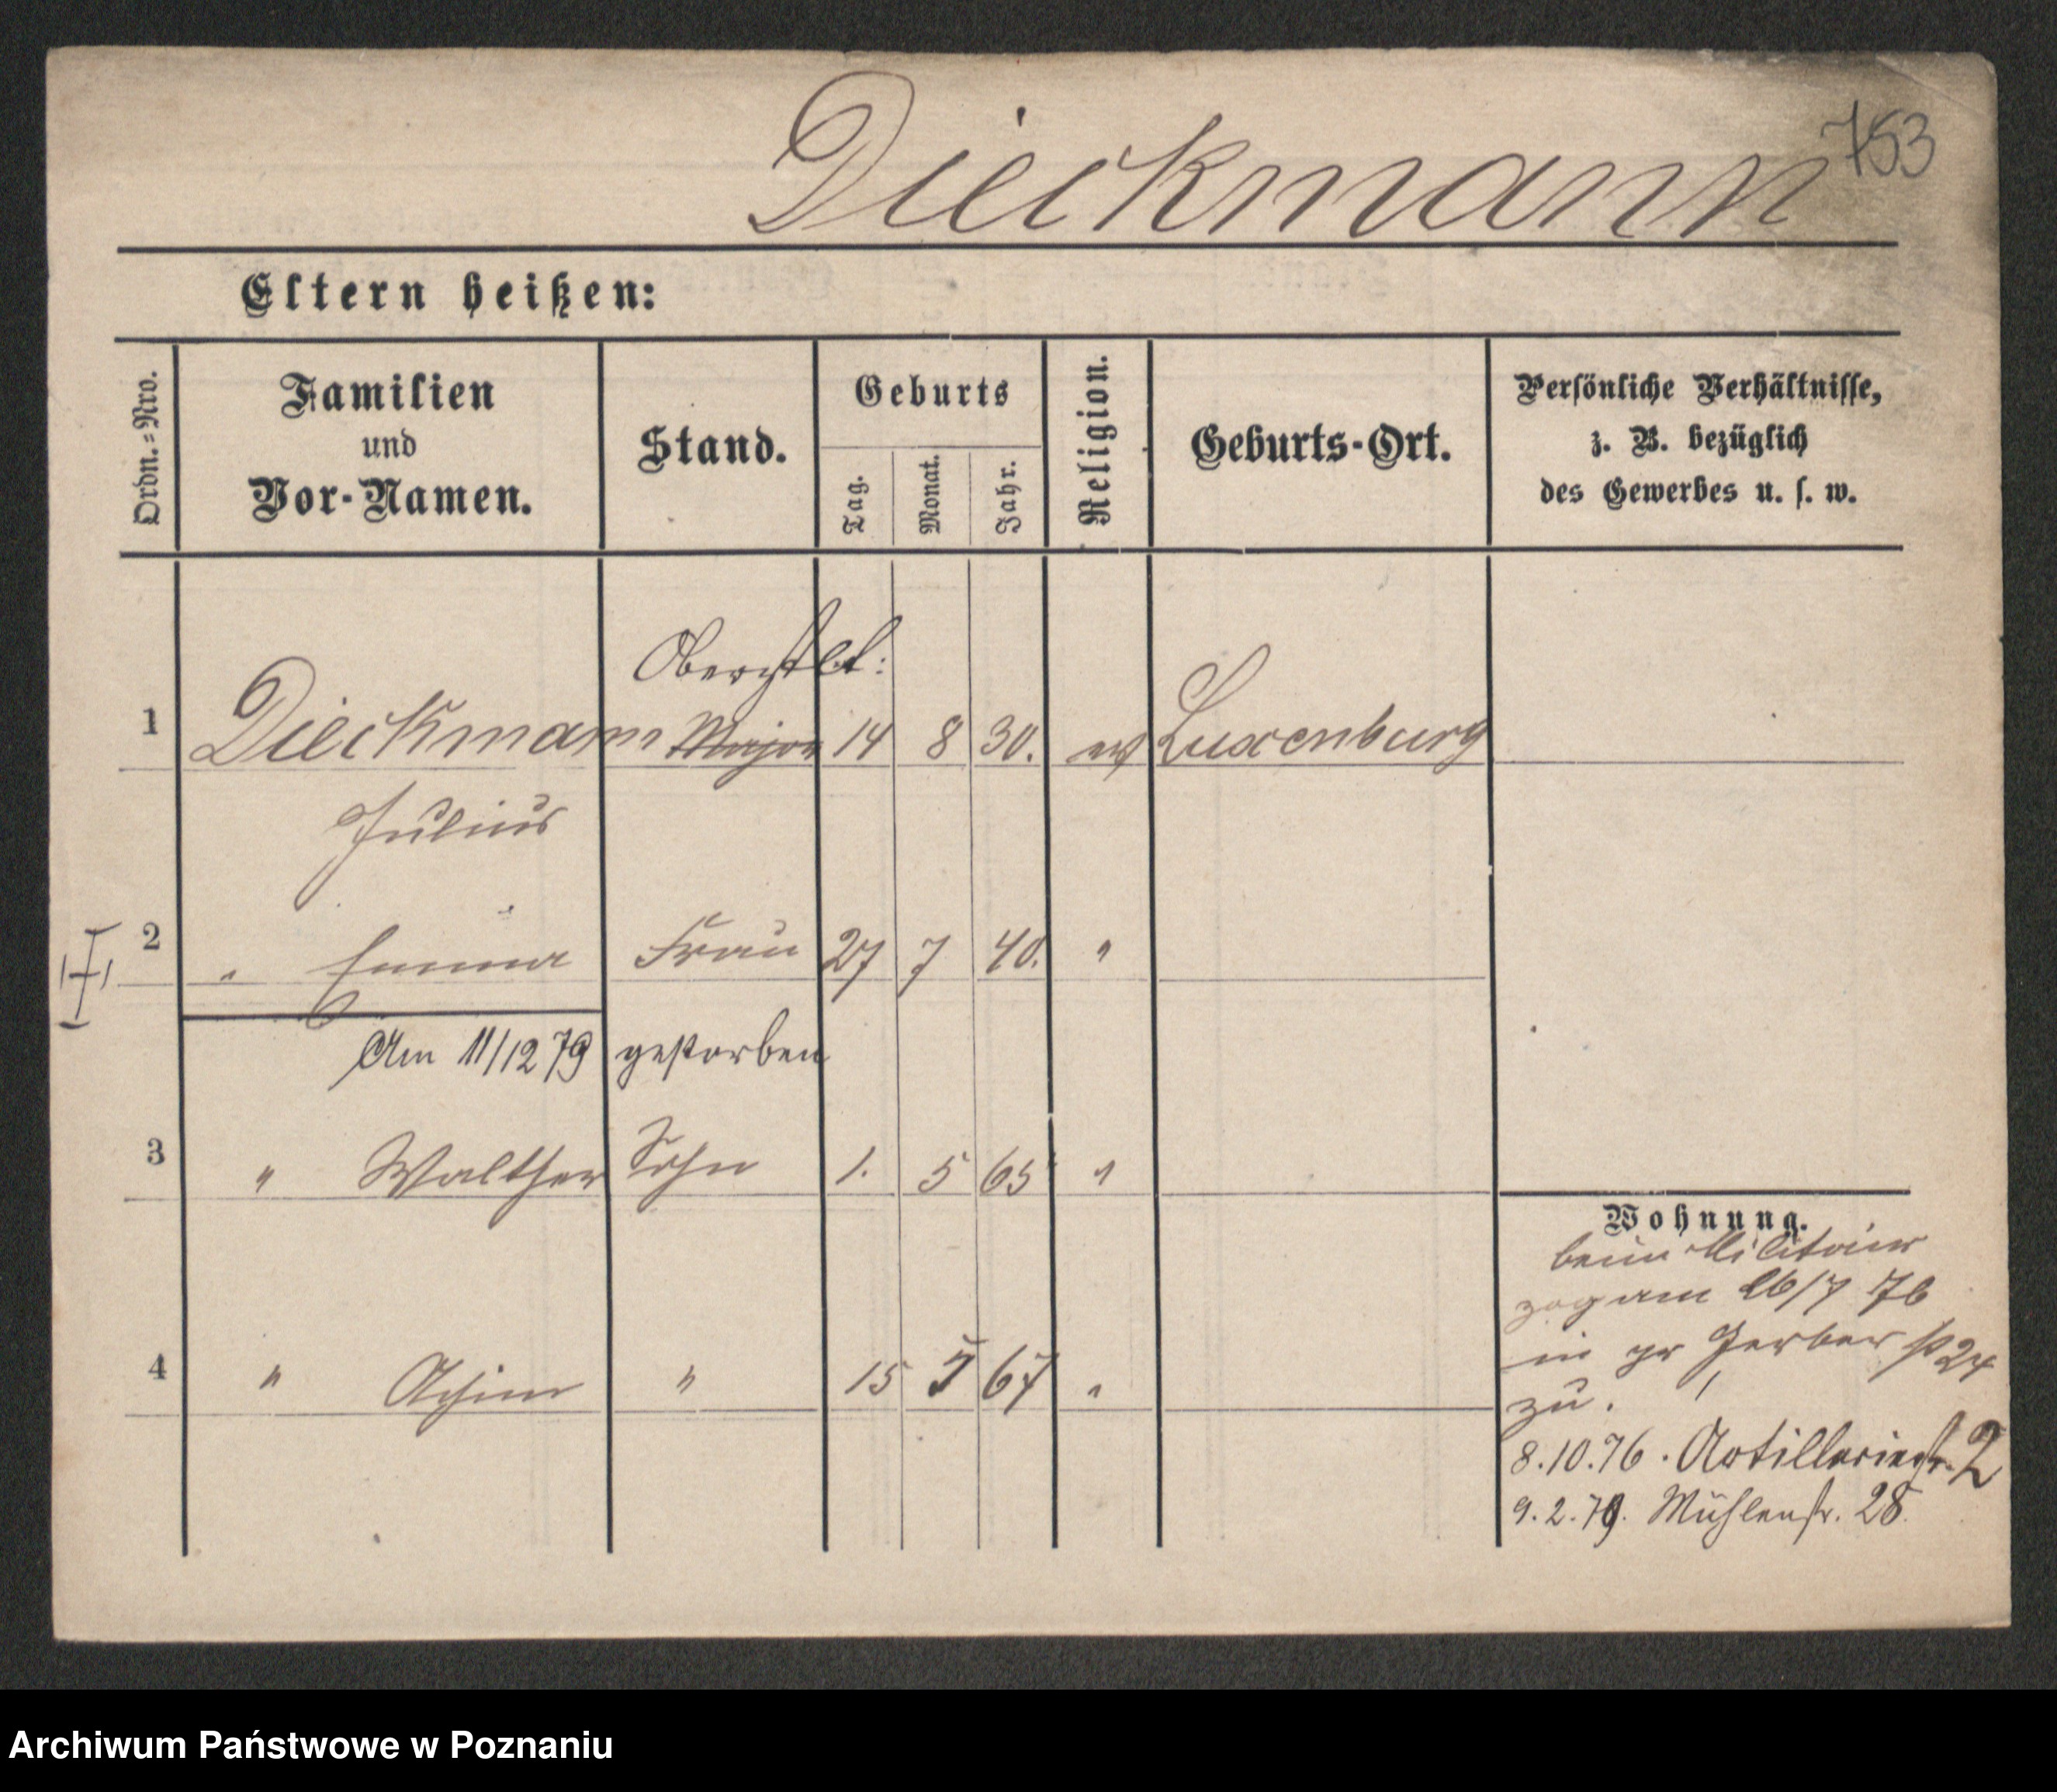 Dieckmann 753
Eltern heißen:
Ordn.=Nro.
Familien
und
Vor-Namen.
Stand.
Geburts
Tag.
Monat.
Jahr.
Religion.
Geburts-Ort.
Persönliche Verhältnisse,
z. B. bezüglich
des Gewerbes u. s. w.
Oberstlt:
1 Dieckmann Major 14 8 30. ev Luxenburg
Julius
2 " Emma Frau 27 7 40. "
Am 11/12 79 gestorben
3 " Walther Sohn 1. 5 65 "
4 " Achim " 15 67 "
Wohnung.
beim Militair
zog am 26/7 76
in gr Gerber str 24
zu.
8.10.76. Artilleriestr. 2
9.2.79. Mühlenstr. 28.
Archiwum Państwowe w Poznaniu